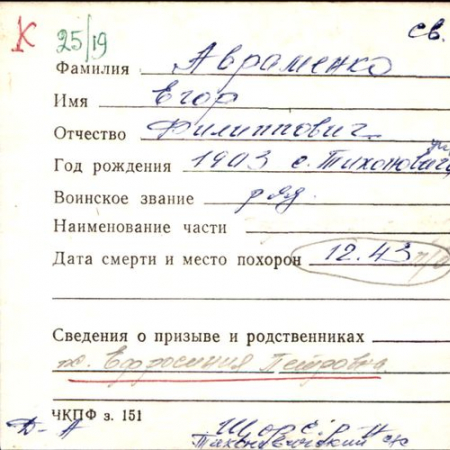 К 25/19 св.
Фамилия Авраменко
Имя Егор
Отчество Филиппович
Год рождения 1903 с. Тихоновичи
Воинское звание ряд.
Наименование части
Дата смерти и место похорон 12.43
Сведения о призыве и родственниках
ж. Ефросиния Петровна
ЧКПФ з. 151
Д-А Щорс. р-н